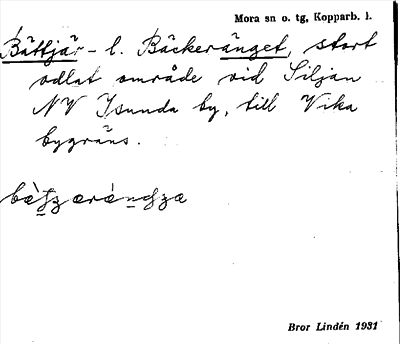 Mora sn o. tg, Kopparb. l.
Bättjär- l. Bäckeränget, stort
odlat område vid Siljan
NV Isunda by, till Vika
bygräns.
Bror Lindén 1931